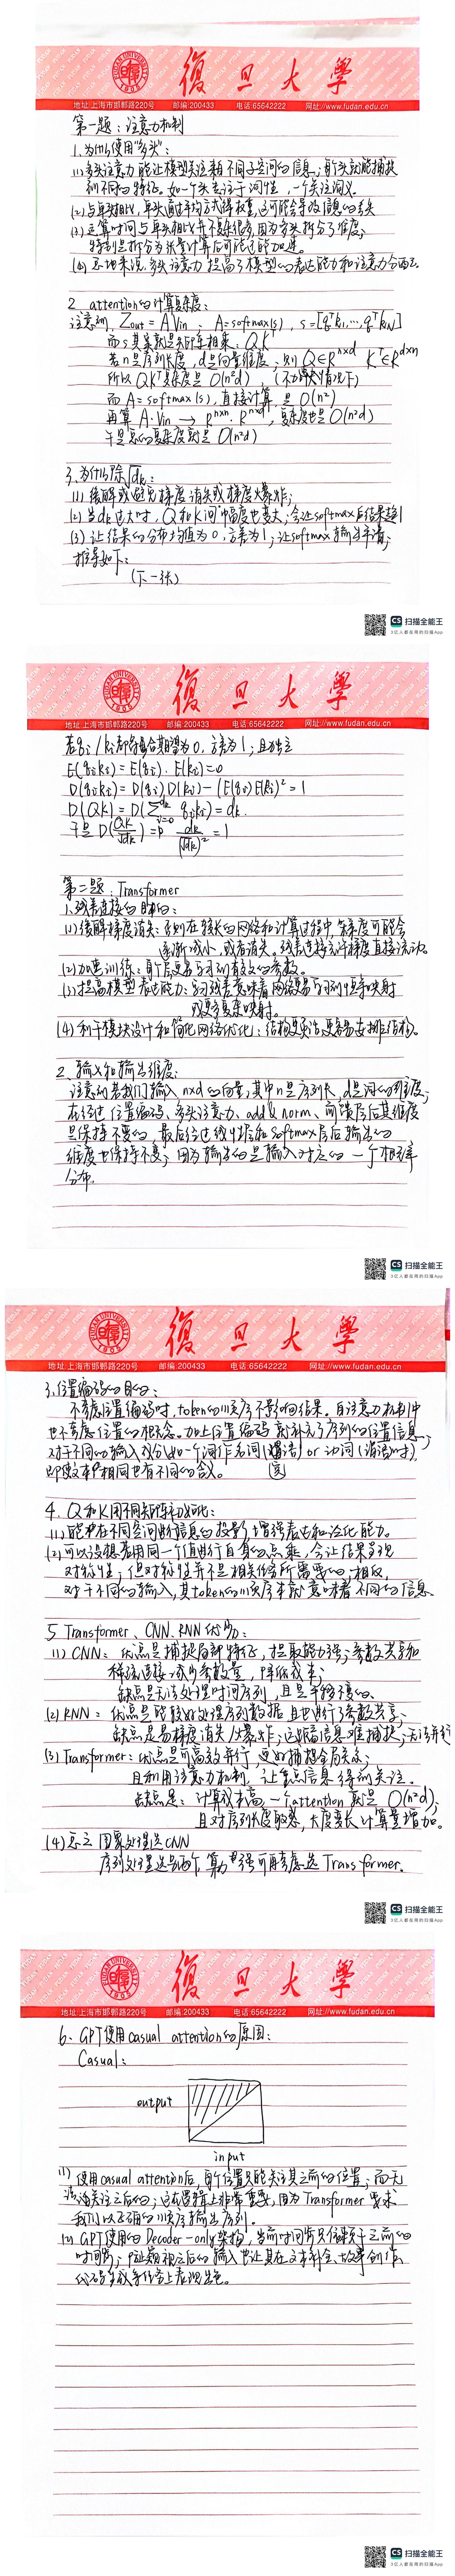 復旦大學
地址:上海市邯郸路220号 邮编:200433 电话:65642222 网址://www.fudan.edu.cn
第一题：注意力机制
1.为什么使用"多头"：
(1)多头注意力能让模型关注来自不同子空间的信息，每个头就能捕获
到不同的特征。如一个头专注于词性，一个关注词义。
(2)与单头相比，单头通过平均方式得权重，这可能会导致信息的丢失
(3)运算时间与单头相比并不复杂很多，因为多头拆分了维度，
特别是拆分为并行计算后可能还能加速。
(4)总地来说，多头注意力提高了模型的表达能力和注意力分配
2 attention的计算复杂度：
注意到，Zout = A Vin ，A=softmax(s)，s=[qᵀk₁,…,qᵀkN]
而s其实就是矩阵相乘：QK
若n是序列长度，d是向量维度，则 Q∈R^{n×d} Kᵀ∈R^{d×n}
所以 QKᵀ复杂度是 O(n²d)
而A=softmax(s)，直接计算是 O(n²)
再算 A·Vin → R^{n×n}·R^{n×d}，复杂度也是O(n²d)
于是总的复杂度就是O(n²d)
3.为什么除√dk：
(1)缓解或避免梯度消失或梯度爆炸；
(2)当dk过大时，Q和K间幅度也变大，会让softmax后结果趋1
(3)让结果的分布均值为0，方差为1；让softmax输出平滑；
推导如下：
(下一张)
CS 扫描全能王
3亿人都在用的扫描App
復旦大學
地址:上海市邯郸路220号 邮编:200433 电话:65642222 网址://www.fudan.edu.cn
若qi/ki都符合期望为0，方差为1，且独立
E(qiki)=E(qi)·E(ki)=0
D(qiki)=D(qi)D(ki)-(E(qi)E(ki))²=1
D(QK)=D(∑ qiki)=dk.
于是 D(QK/√dk)= dk/(√dk)² =1
第二题：Transformer
1.残差连接的目的：
(1)缓解梯度消失：序列在较长的网络和计算过程中，梯度可能会
逐渐减小，或者消失。残差连接允许梯度直接流动。
(2)加速训练：每层更易学习到有效的参数。
(3)提高模型表达能力：学习残差意味着网络易学习到恒等映射
或更复杂映射。
(4)利于模块设计和简化网络优化：结构更灵活更易安排结构。
2.输入和输出维度：
注意到若我们输入n×d的向量，其中n是序列长，d是词的维度；
在经过位置编码、多头注意力、add& norm、前馈层后其维度
是保持不变的，最后经过线性层和softmax层后输出的
维度也保持不变；因为输出的是输入对应的一个概率
分布.
CS 扫描全能王
3亿人都在用的扫描App
復旦大學
地址:上海市邯郸路220号 邮编:200433 电话:65642222 网址://www.fudan.edu.cn
3.位置编码的目的：
不考虑位置编码时，token的顺序不影响结果。自注意力机制中
也不考虑位置的概念。加上位置编码就补充了序列的位置信息，
对于不同的输入成分(如一个词作名词 or 动词(谓语时)，
即使文本相同也有不同的含义。
4. Q和K用不同矩阵初始化：
(1)能在不同空间进行信息的投影，增强表达和泛化能力。
(2)可以设想若用同一个值进行自身的点乘，会让结果呈现
对称性，但对称性并不是相关任务所需要的，相反，
对于不同的输入，其token的顺序本就意味着不同的信息.
5 Transformer、CNN、RNN优劣：
(1) CNN：优点是捕捉局部特征，提取能力强；参数共享和
稀疏连接，减少参数量，降低成本；
缺点是无法处理时间序列，且是平移不变的.
(2) RNN：优点是能较好处理序列数据 且也进行了参数共享；
缺点是易梯度消失/爆炸，远距信息难捕捉；无法并行
(3) Transformer：优点是可高效并行，更好捕捉全局关系；
且利用注意力机制，让重点信息得到关注。
缺点是：计算成本高，一个attention就是 O(n²d)；
且对序列长度敏感，长度变长计算量增加。
(4)总之 图象处理选CNN
序列处理选另两个，算力够强可再考虑选Transformer。
CS 扫描全能王
3亿人都在用的扫描App
復旦大學
地址:上海市邯郸路220号 邮编:200433 电话:65642222 网址://www.fudan.edu.cn
6、GPT使用casual attention的原因：
Casual：
output
input
(1) 使用casual attention后，每个位置只能关注其之前的位置；而无
法关注之后的；这在逻辑上非常重要，因为Transformer要求
我们以正确的顺序输出序列。
(2) GPT使用的Decoder-only架构，当前时间步只依赖于之前的
时间步；隐藏之后的输入也让其在文本补全、故事创作、
代码生成等任务上表现出色。
CS 扫描全能王
3亿人都在用的扫描App